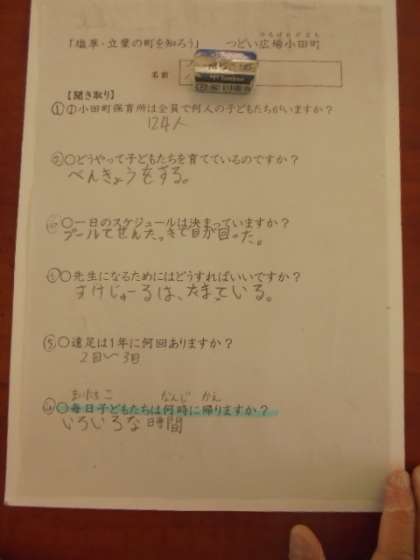 「塩草・立葉の町を知ろう」 つどい広場小田町
名前
【聞き取り】
① ○小田町保育所は全員で何人の子どもたちがいますか？
124人
② ○どうやって子どもたちを育てているのですか？
べんきょうをする。
○一日のスケジュールは決まっていますか？
プールでせんたっきで目が回った。
○先生になるためにはどうすればいいですか？
すけじゅーるは、たまっている。
⑤ ○遠足は1年に何回ありますか？
2回〜3回
まいにち こ なんじ かえ
○毎日子どもたちは何時に帰りますか？
いろいろな時間